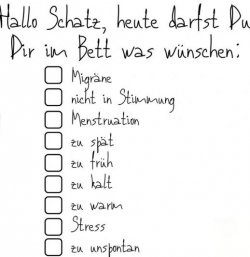 Hallo Schatz, heute darfst Du
Dir im Bett was wünschen:
Migräne
nicht in Stimmung
Menstruation
zu spät
zu früh
zu kalt
zu warm
Stress
zu unspontan